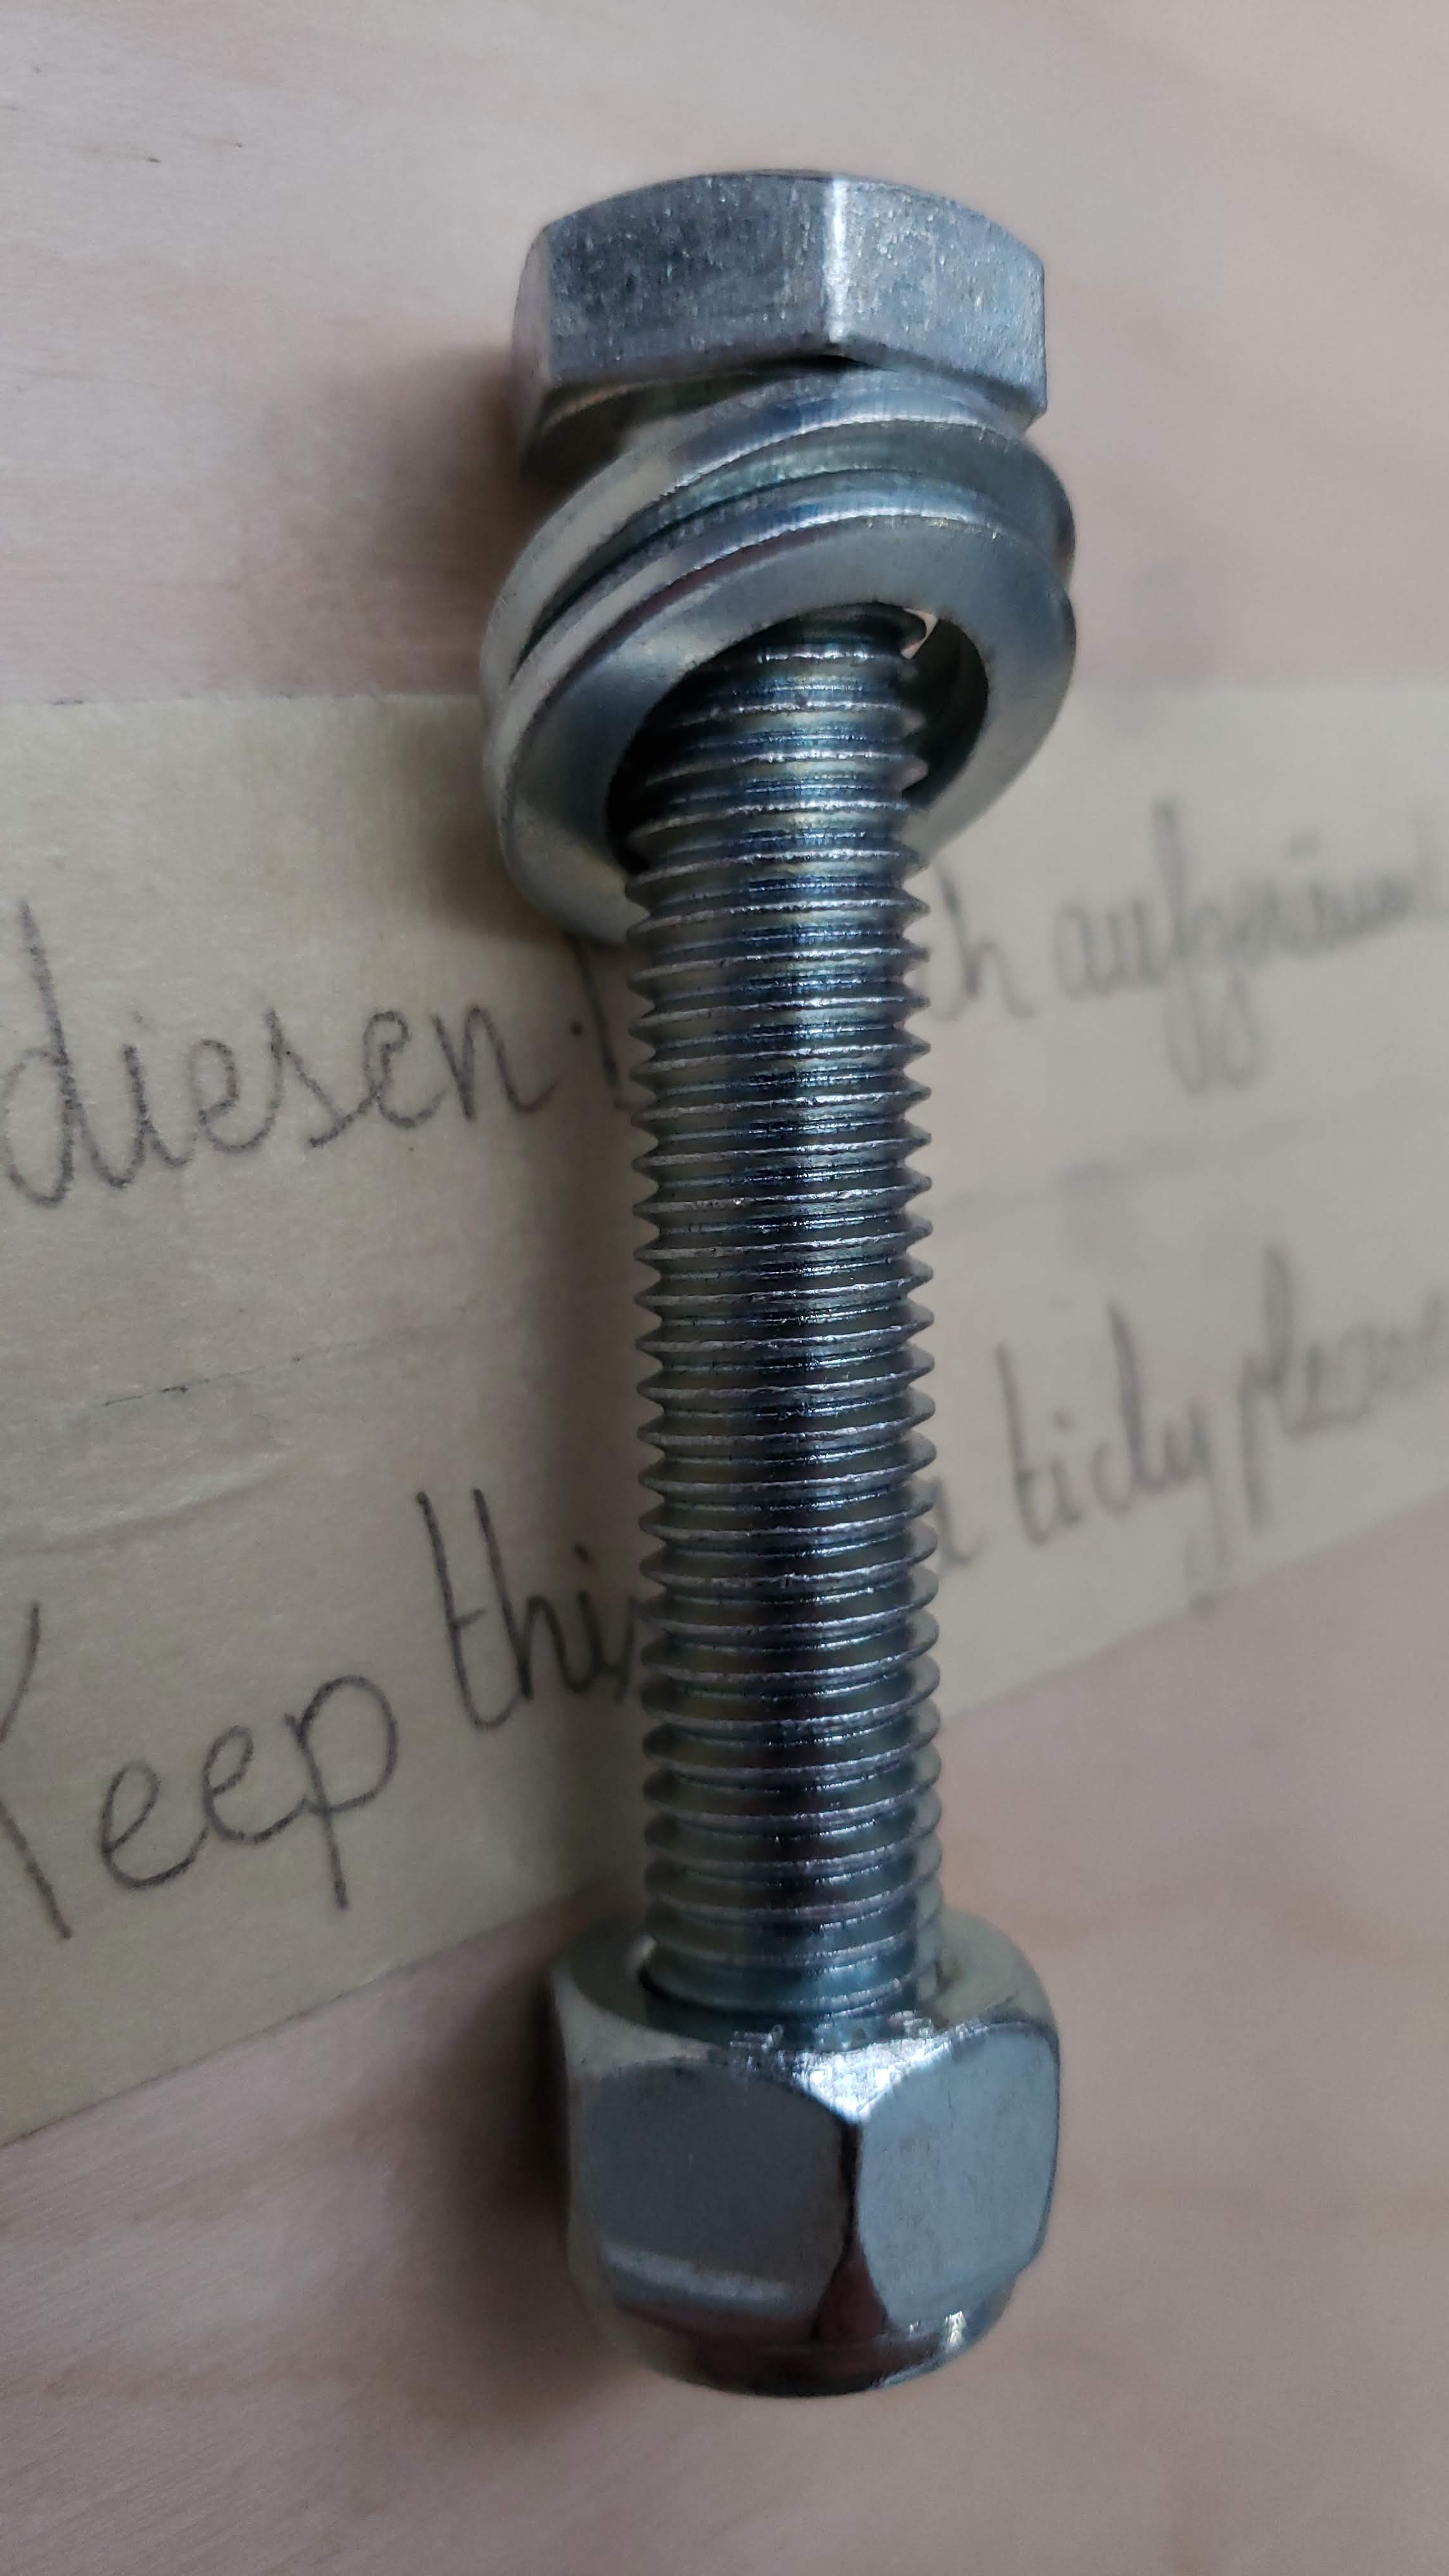 diesen aufgeräumt
Keep this a tidy please